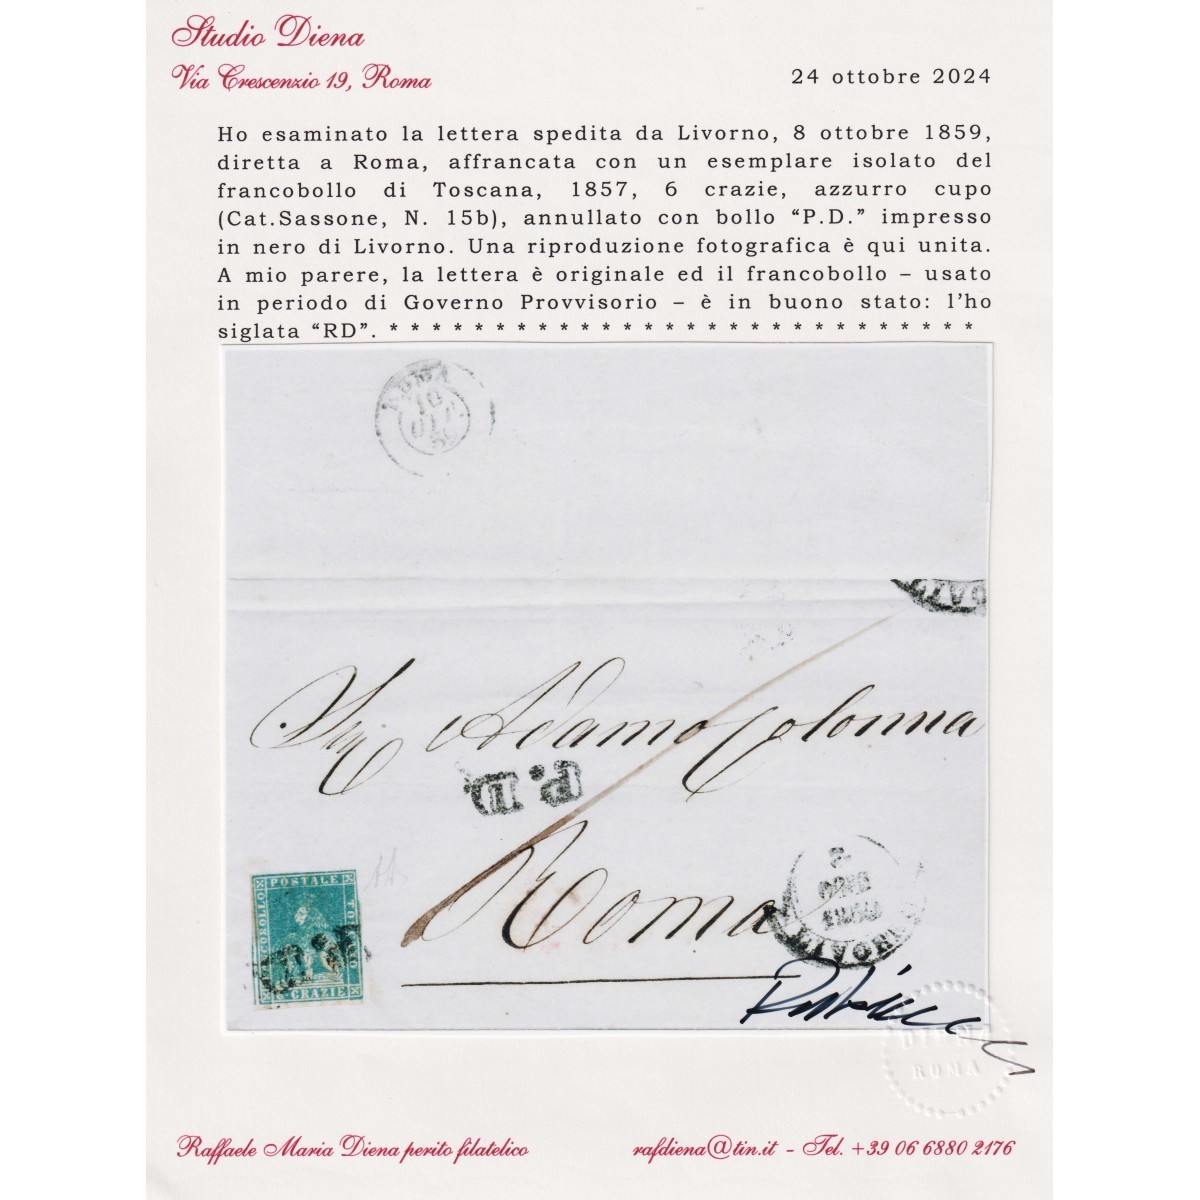 Studio Diena
Via Crescenzio 19, Roma
24 ottobre 2024
Ho esaminato la lettera spedita da Livorno, 8 ottobre 1859,
diretta a Roma, affrancata con un esemplare isolato del
francobollo di Toscana, 1857, 6 crazie, azzurro cupo
(Cat.Sassone, N. 15b), annullato con bollo “P.D.” impresso
in nero di Livorno. Una riproduzione fotografica è qui unita.
A mio parere, la lettera è originale ed il francobollo – usato
in periodo di Governo Provvisorio – è in buono stato: l’ho
siglata “RD”. * * * * * * * * * * * * * * * * * * * * * * * * * * * *
ROMA
10
Adamo Colonna
P.D.
Roma
LIVORNO
FRANCOBOLLO POSTALE TOSCANO
6 CRAZIE
P.D.
DIENA
ROMA
Raffaele Maria Diena perito filatelico
rafdiena@tin.it - Tel. +39 06 6880 2176